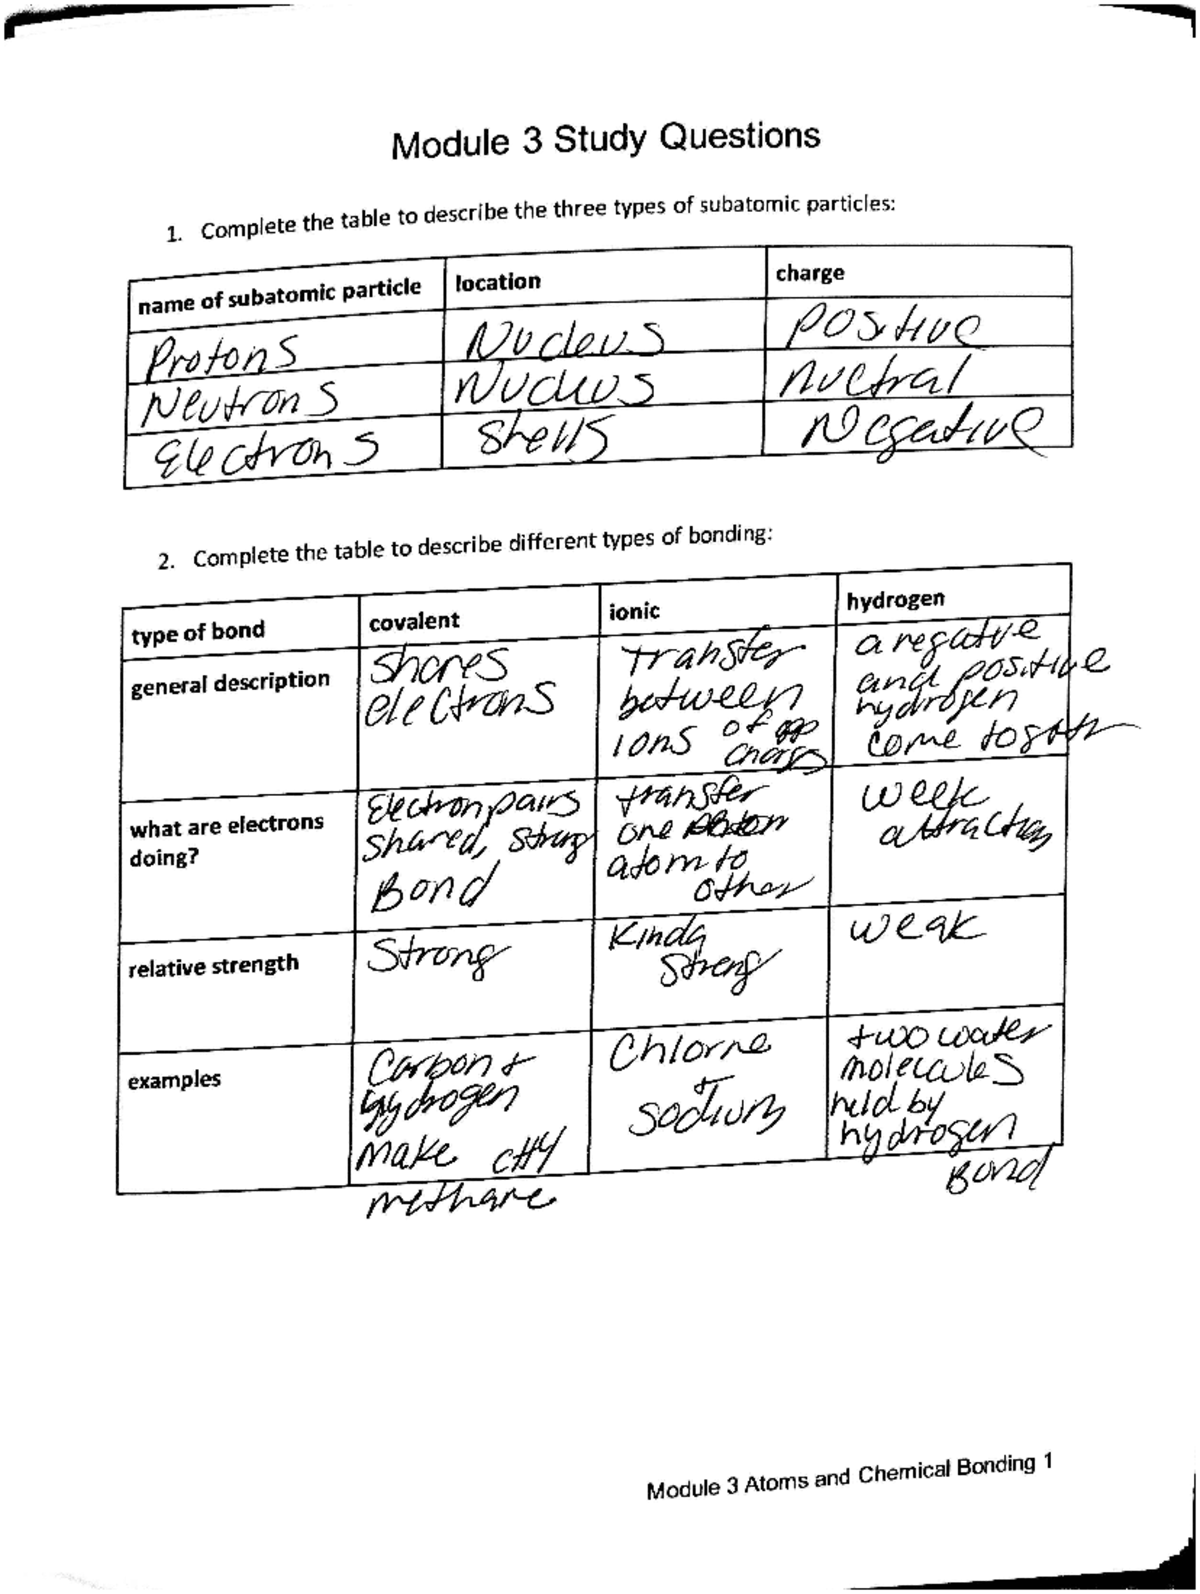 Module 3 Study Questions
1. Complete the table to describe the three types of subatomic particles:
name of subatomic particle location charge
Protons Nucleus positive
Neutrons Nucleus nuetral
Electrons Shells Negative
2. Complete the table to describe different types of bonding:
type of bond covalent ionic hydrogen
general description
shares
electrons
Transfer
between
ions of opp
charges
a negative
and positive
hydrogen
come together
what are electrons
doing?
Electron pairs
shared, strong
Bond
transfer
one
atom to
other
week
attraction
relative strength
Strong
Kinda
Streng
weak
examples
Carbon +
Hydrogen
make CH4
methane
Chlorne
+
Sodium
two water
molecules
held by
hydrogen
Bond
Module 3 Atoms and Chemical Bonding 1